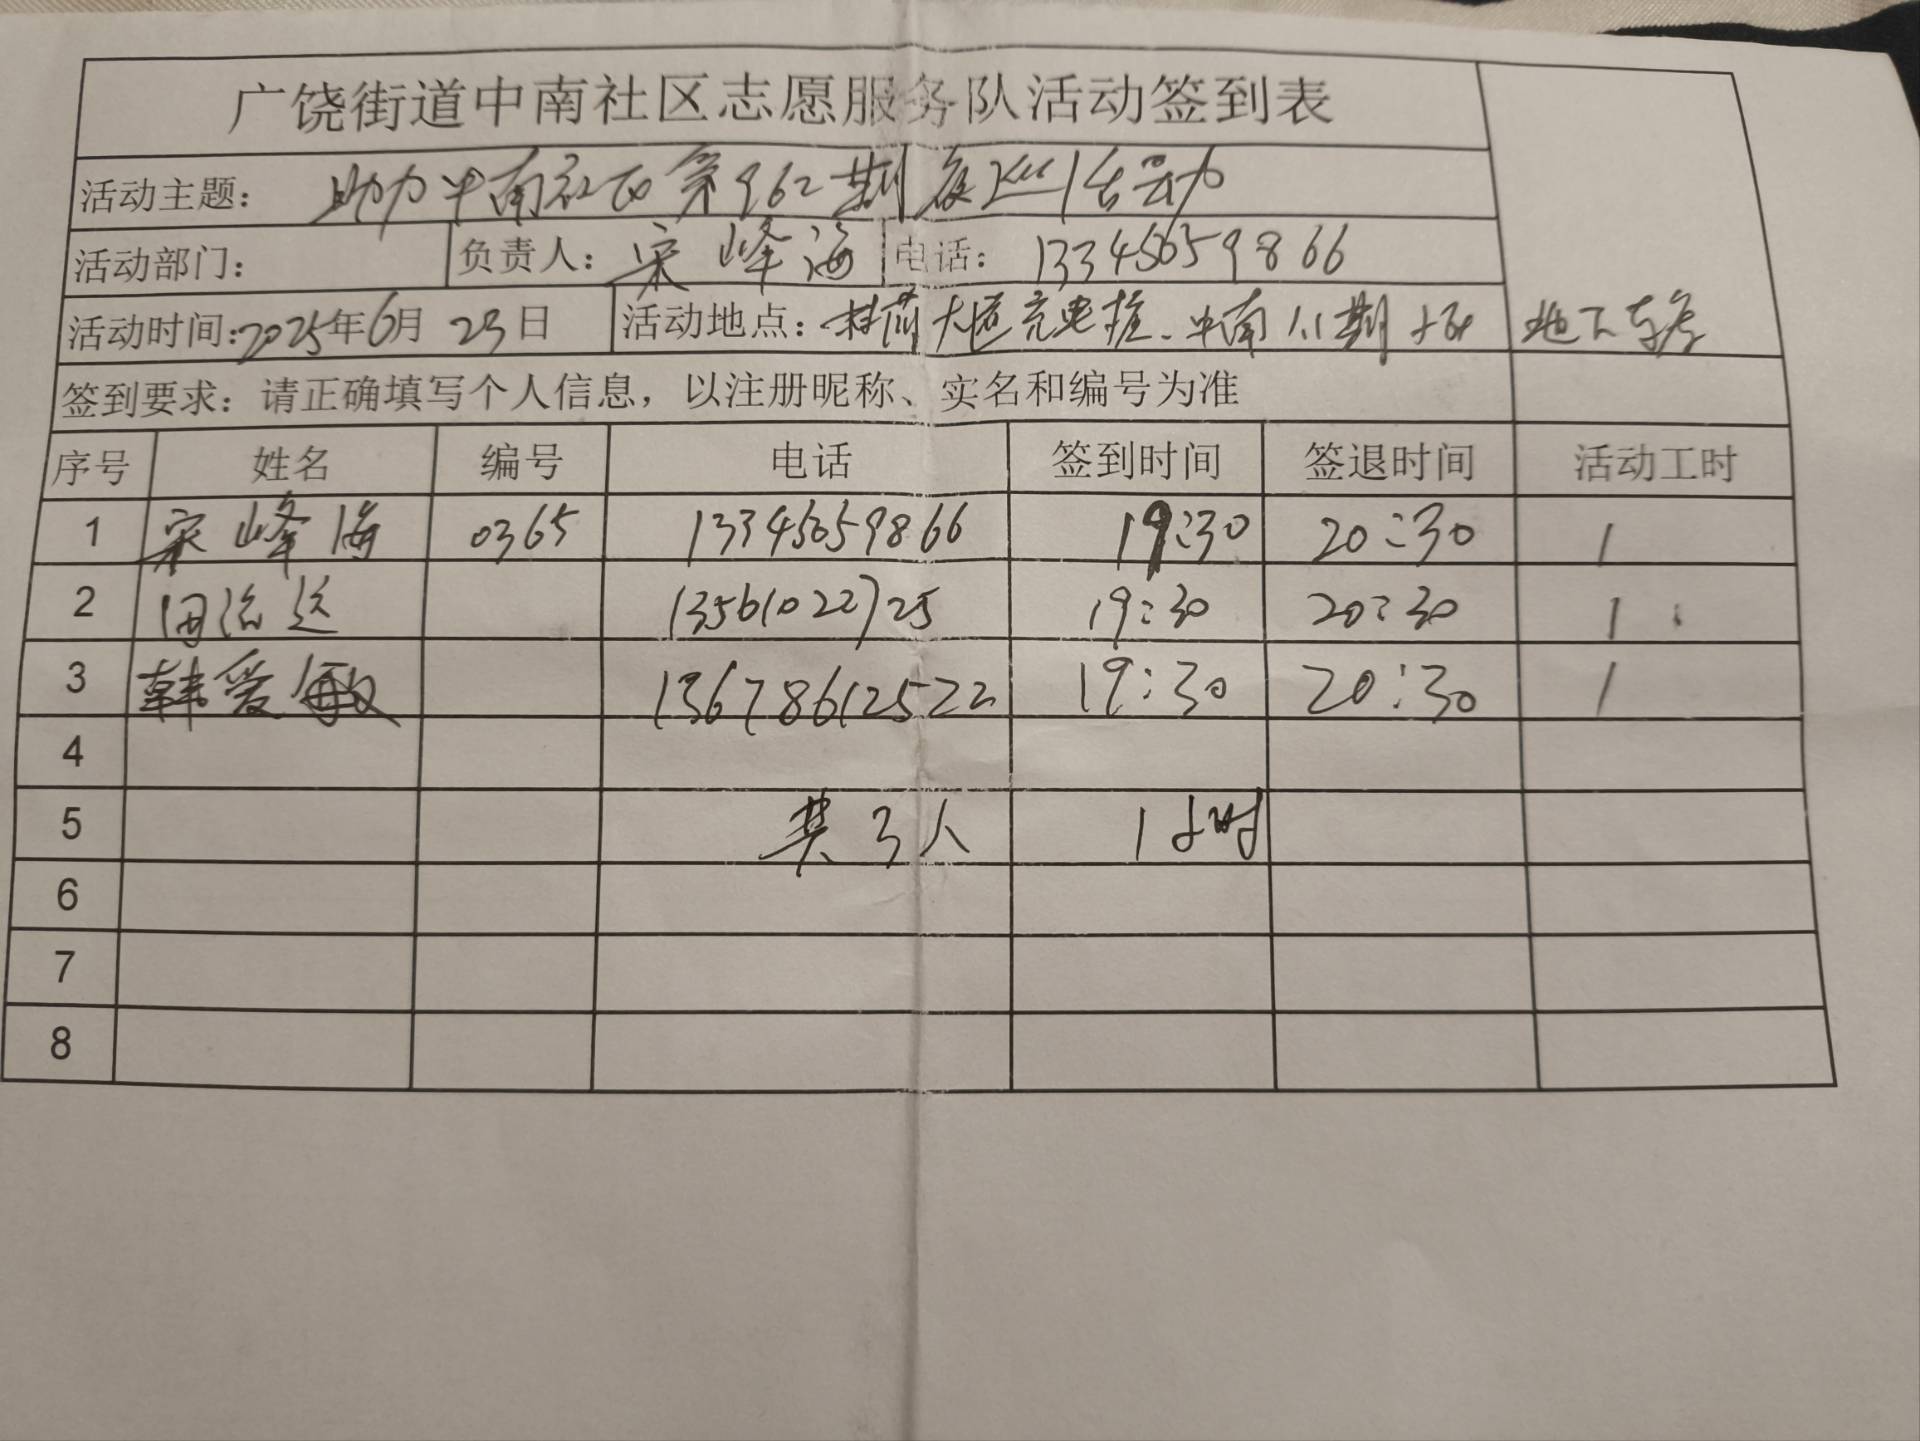 广饶街道中南社区志愿服务队活动签到表
活动主题： 助力中南社区第962期夜巡活动
活动部门： 负责人：宋峰海 电话：13345659866
活动时间：2025年6月23日 活动地点： 大道充电桩、中南 期 地下车库
签到要求：请正确填写个人信息，以注册昵称、实名和编号为准
序号 姓名 编号 电话 签到时间 签退时间 活动工时
1 宋峰海 0365 13345659866 19:30 20:30 1
2 13561022725 19:30 20:30 1
3 韩爱敏 13678612522 19:30 20:30 1
4
5 共3人 1小时
6
7
8